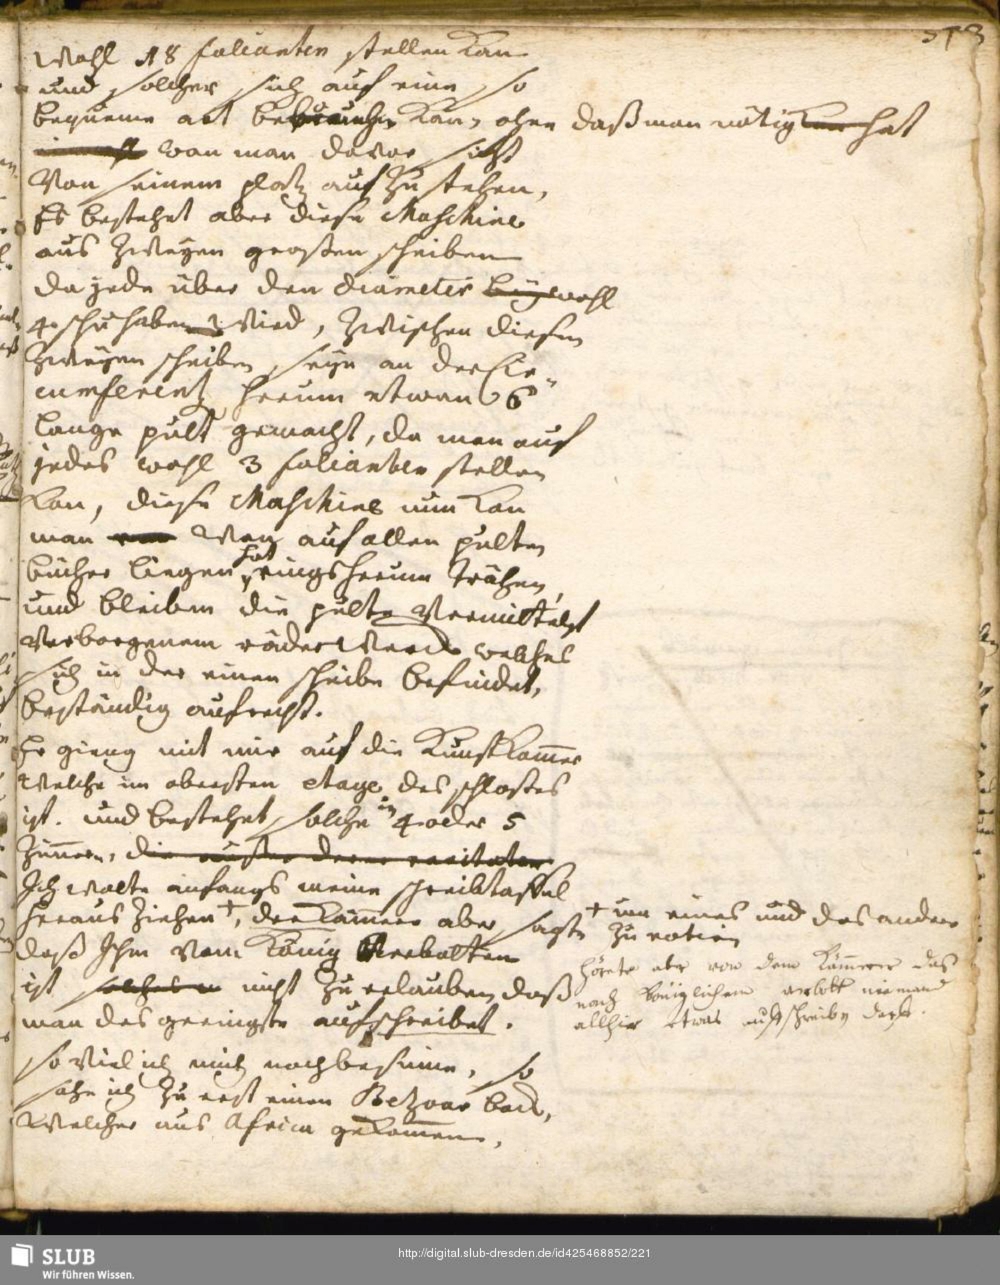 wohl 18 folianten stellen kan
und solcher sich auf eine so
bequeme art kan, ohne daß man nötig hat
wan man davor sitzt
von seinem platz auf zu stehen,
Es bestehet aber diese Maschine
aus zweyen grossen scheiben
da jede über den diameter wohl
4. schu haben wird, zwischen diesen
zweyen scheiben seyn an der Cir-
cumferentz herum etwan 6
lange pult gemacht, da man auf
jedes wohl 3 folianten stellen
kan, diese Maschine nun kan
man wan auf allen pulten
bücher liegen hat, rings herum trähen,
und bleiben die pulte vermittelst
verborgenem räderwerck welches
sich in der einen scheibe befindet,
beständig aufrecht.
Er gieng mit mir auf die Kunstkammer
welche im obersten etage des schlosses
ist. und bestehet solche in 4. oder 5
Zimern,
Ich wolte anfangs meine schreibtaffel
heraus ziehen †, der Kämmerer aber sagte
† um eines und das andere
zu notiren
daß Ihm vom König verbotten
ist nicht zu erlauben, daß
man das geringste aufschreibet.
hörete aber von dem Kämmerer das
nach königlichem verbott niemand
allhier etwas aufschreiben derfe.
so viel ich mich nach besinne, so
sahe ich zu erst einen Bezoar bock,
welcher aus Africa gekommen,
SLUB
Wir führen Wissen.
http://digital.slub-dresden.de/id425468852/221